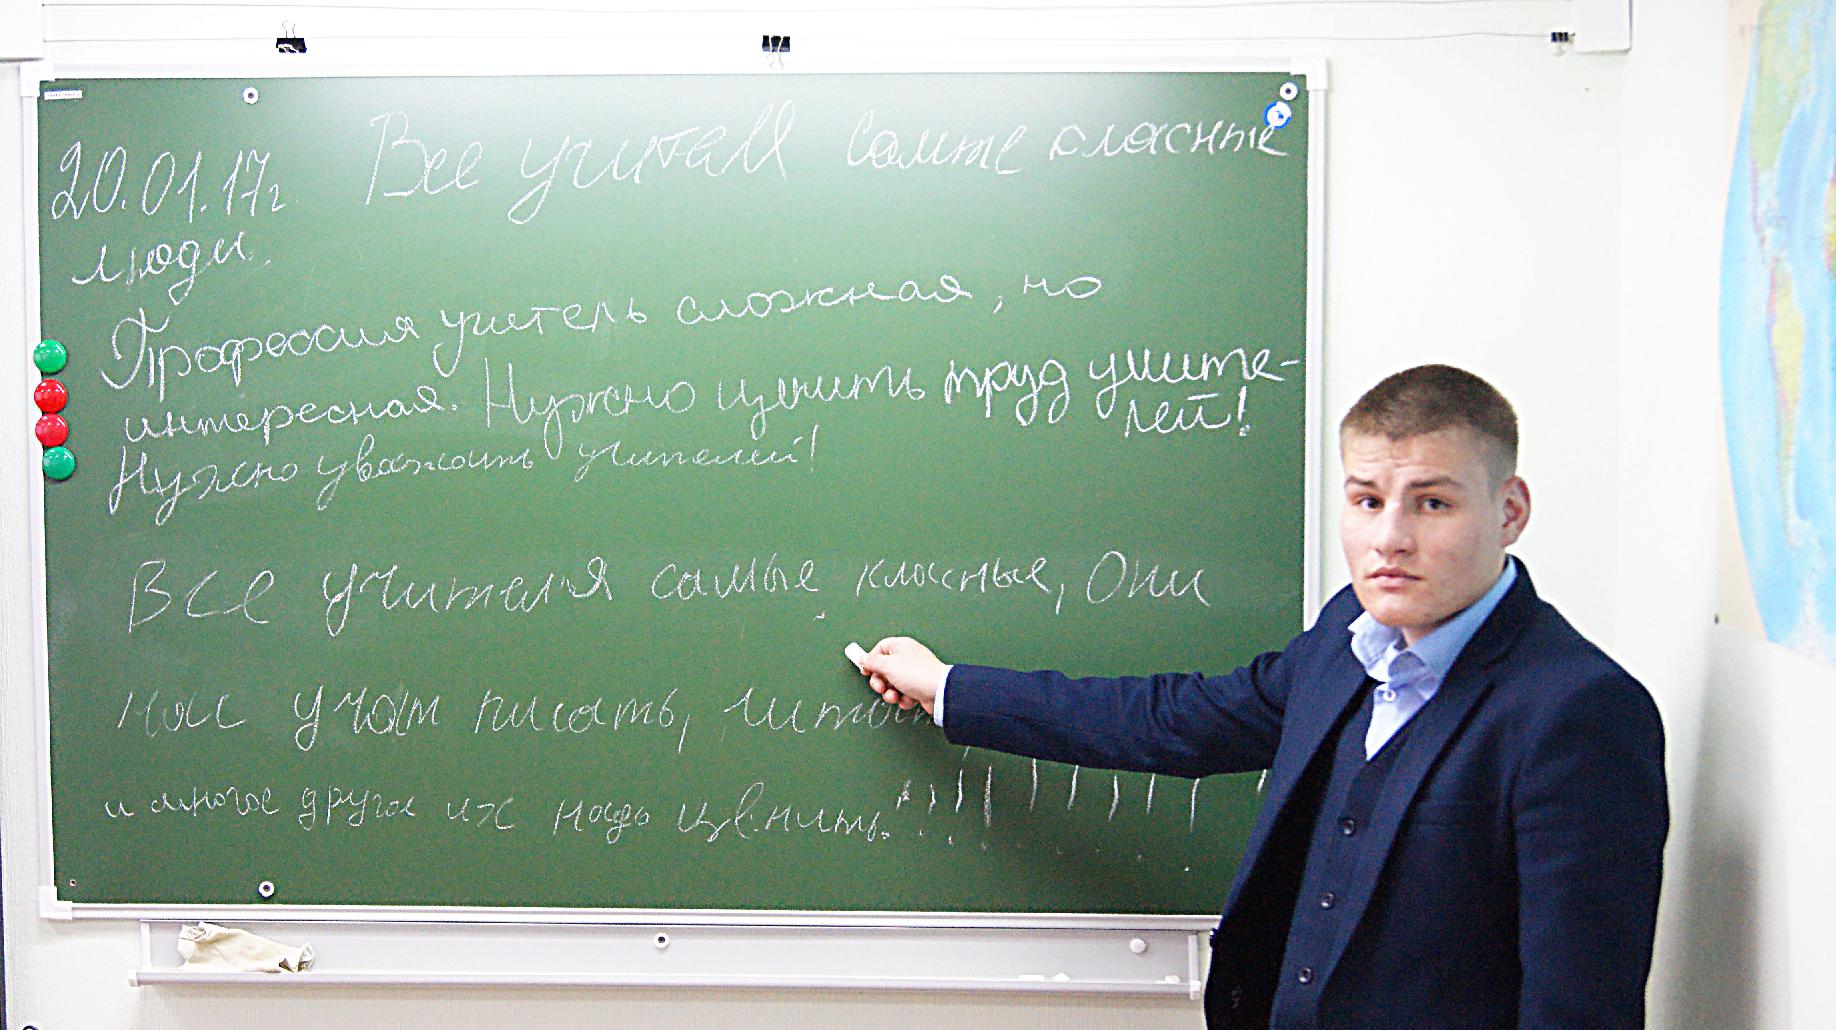 20.01.17г. Все учителя самые класные
люди.
Профессия учитель сложная, но
интересная. Нужно ценить труд учите-
лей!
Нужно уважать учителей!
Все учителя самые класные, Они
нас учат писать,
и многое другое их надо цвенить.!!!!!!!!!!